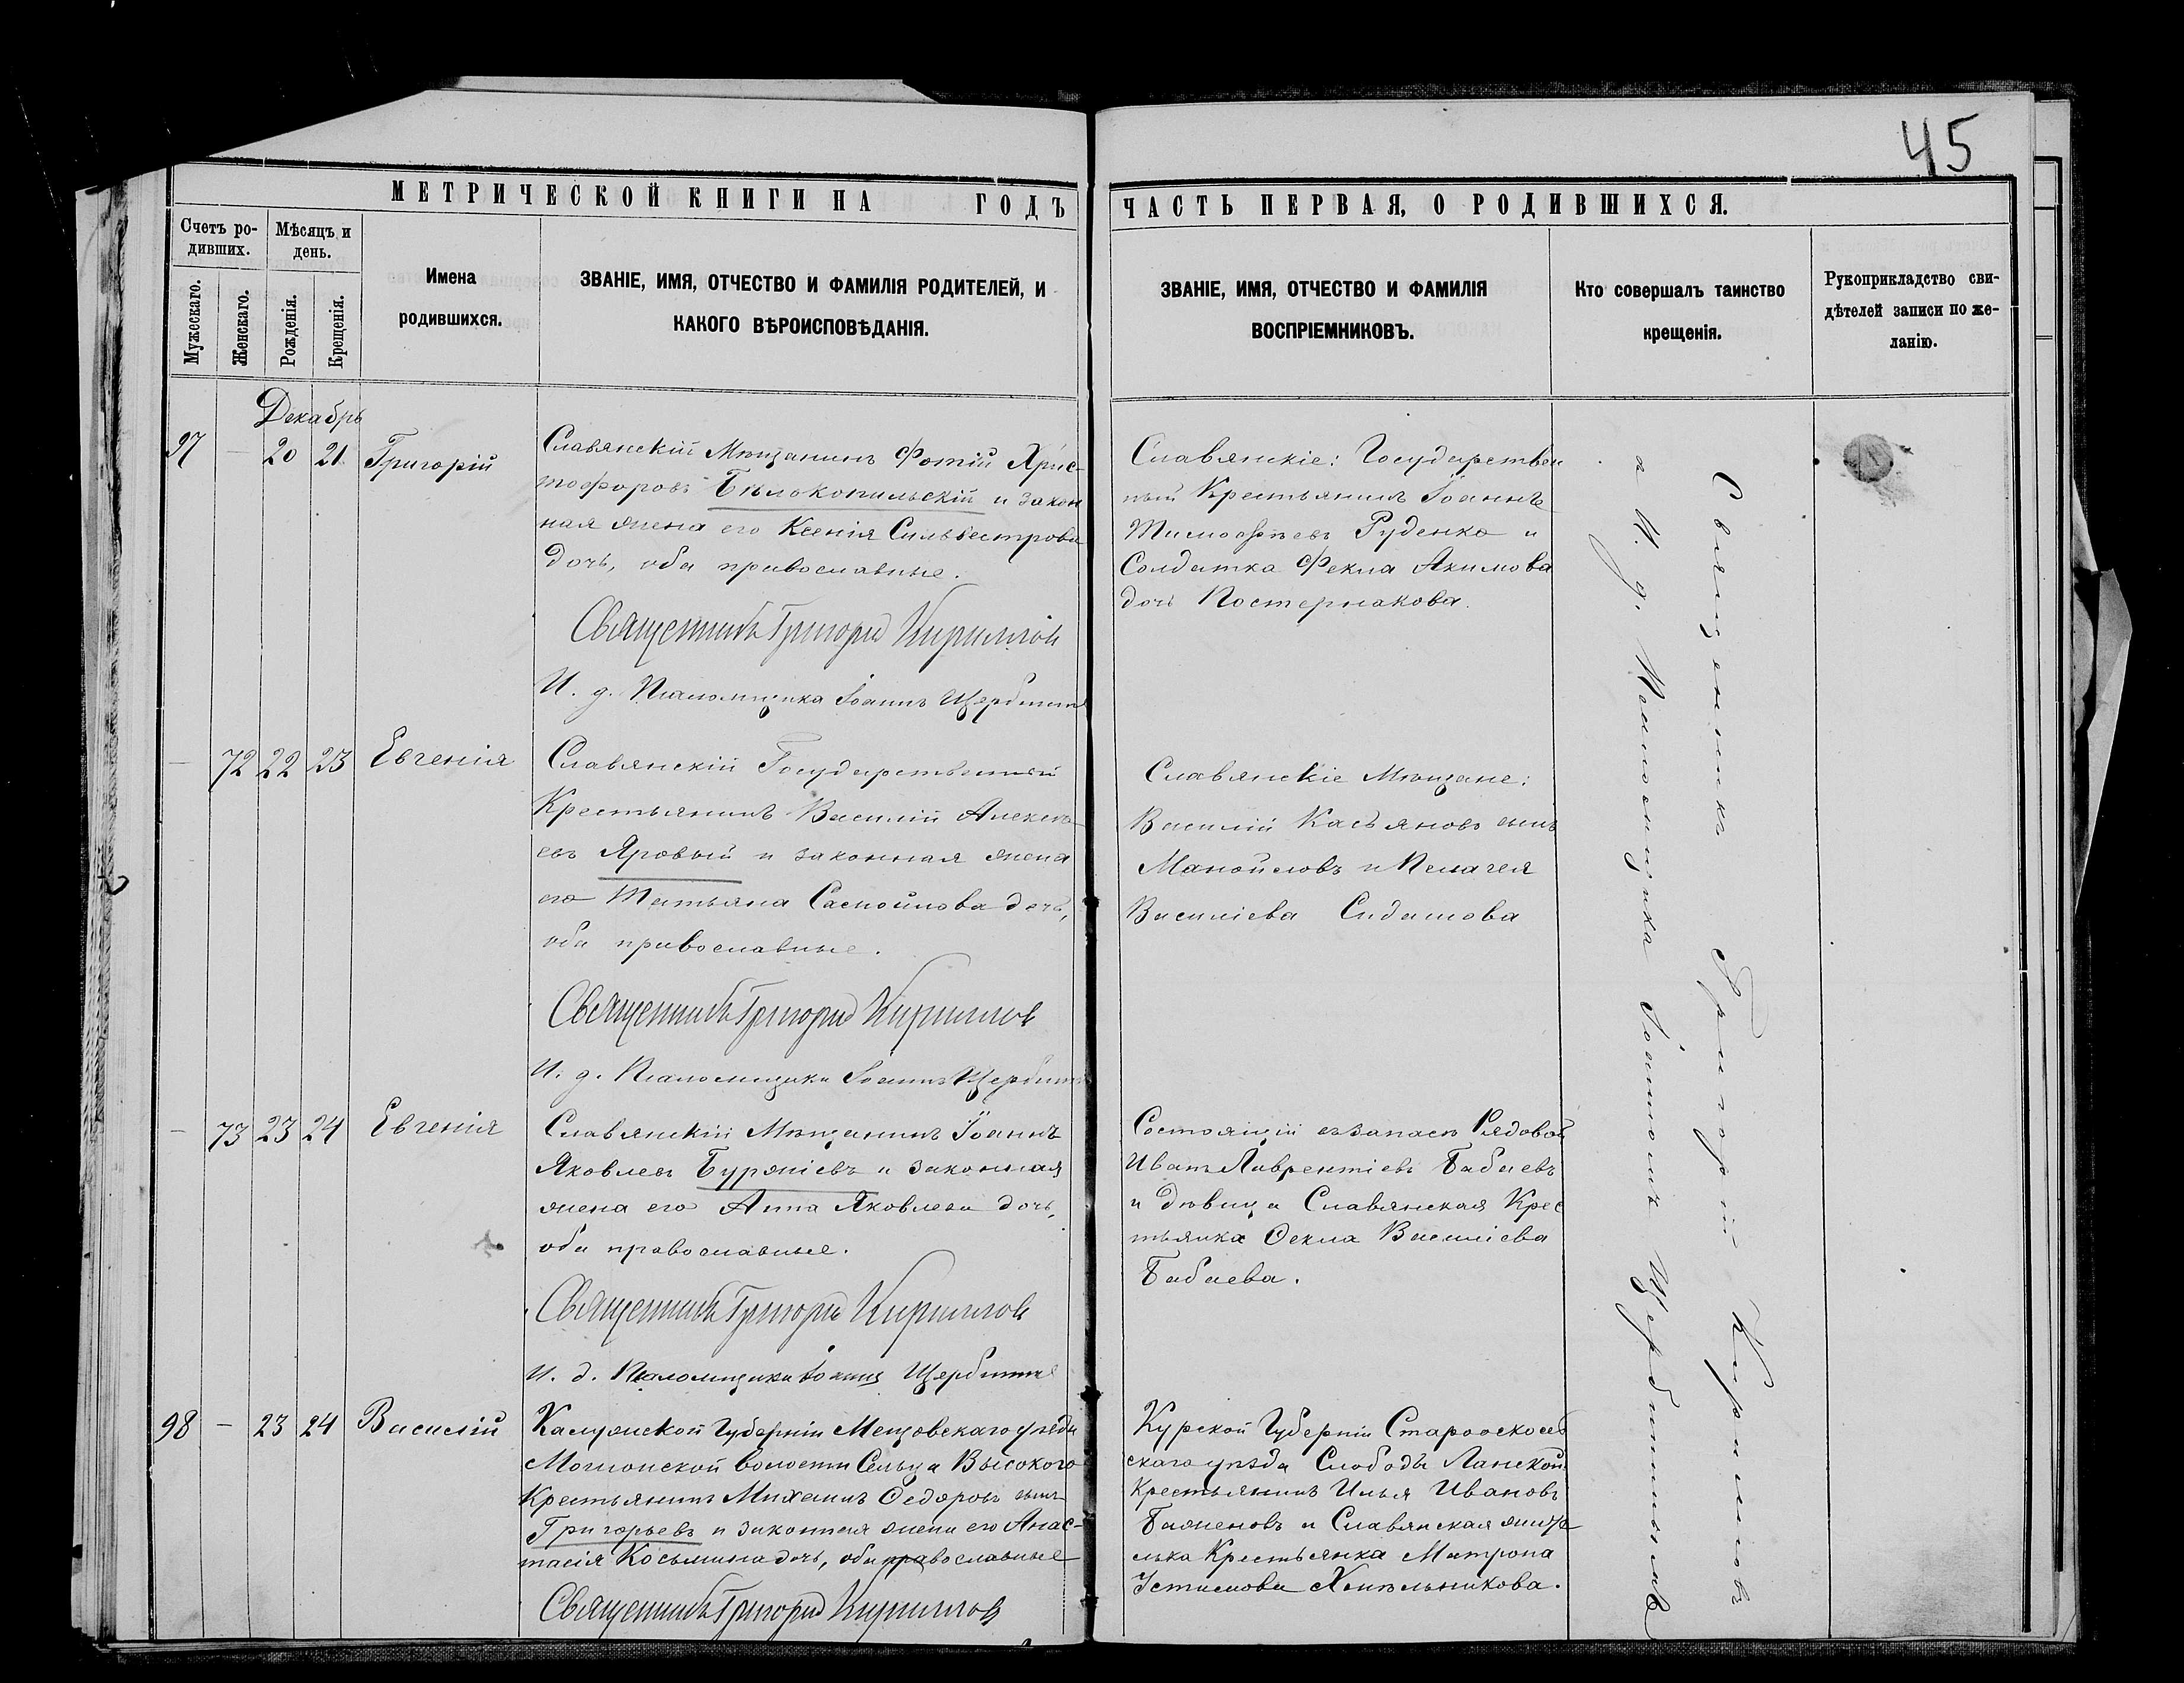 45
МЕТРИЧЕСКОЙ КНИГИ НА ГОДЪ
ЧАСТЬ ПЕРВАЯ, О РОДИВШИХСЯ.
Счетъ ро-
дивших.
Мужескаго.
Женскаго.
Мѣсяцъ и
день.
Рожденія.
Крещенія.
Имена
родившихся.
ЗВАНІЕ, ИМЯ, ОТЧЕСТВО И ФАМИЛІЯ РОДИТЕЛЕЙ, И
КАКОГО ВѢРОИСПОВѢДАНІЯ.
ЗВАНІЕ, ИМЯ, ОТЧЕСТВО И ФАМИЛІЯ
ВОСПРІЕМНИКОВЪ.
Кто совершалъ таинство
крещенія.
Рукоприкладство сви-
дѣтелей записи по же-
ланію.
Декабрь
97 — 20 21 Григорій
Славянскій Мѣщанинъ Фотій Хрис-
тофоровъ Бѣлокопильскій и закон
ная жена его Ксенія Сильвестрова
дочь, оба православные.
Священникъ Григорій Кириллов
И. д. Псаломщика Іоаннъ Щербина
Славянскіе: Государствен
ный Крестьянинъ Іоаннъ
Тимофѣевъ Руденко и
Солдатка Фекла Акимова
дочь Постернакова.
— 72 22 23 Евгенія
Славянскій Государственный
Крестьянинъ Василій Алексѣ-
евъ Яровый и законная жена
его Татьяна дочь,
оба православные.
Священникъ Григорій Кириллов
И. д. Псаломщика Іоаннъ Щербина
Славянскіе Мѣщане:
Василій Касьяновъ сынъ
Манойловъ и Пелагея
Василіева
— 73 23 24 Евгенія
Славянскій Мѣщанинъ Іоаннъ
Яковлевъ и законная
жена его Анна Яковлева дочь,
оба православные.
Священникъ Григорій Кириллов
И. д. Псаломщика Іоаннъ Щербина
Состоящій въ запасѣ Рядовой
Иванъ Лаврентіевъ Бабаевъ
и дѣвица Славянская Крес
тьянка Ѳекла Василіева
Бабаева.
98 — 23 24 Василій
Калужской Губерніи Мещовскаго уѣзда
волости Сельца Высокого
Крестьянинъ Михаилъ Ѳедоровъ сынъ
Григорьевъ и законная жена его Анас-
тасія Косьмина дочь, оба православные
Священникъ Григорій Кириллов
Курской Губерніи Старооскол
скаго уѣзда Слободы Ланской
Крестьянинъ Илья Ивановъ
и Славянская жите
лька Крестьянка Матрона
Устимова Хмѣльникова.
Священникъ Григорій Кирилловъ
и И. д. Псаломщика Іоаннъ